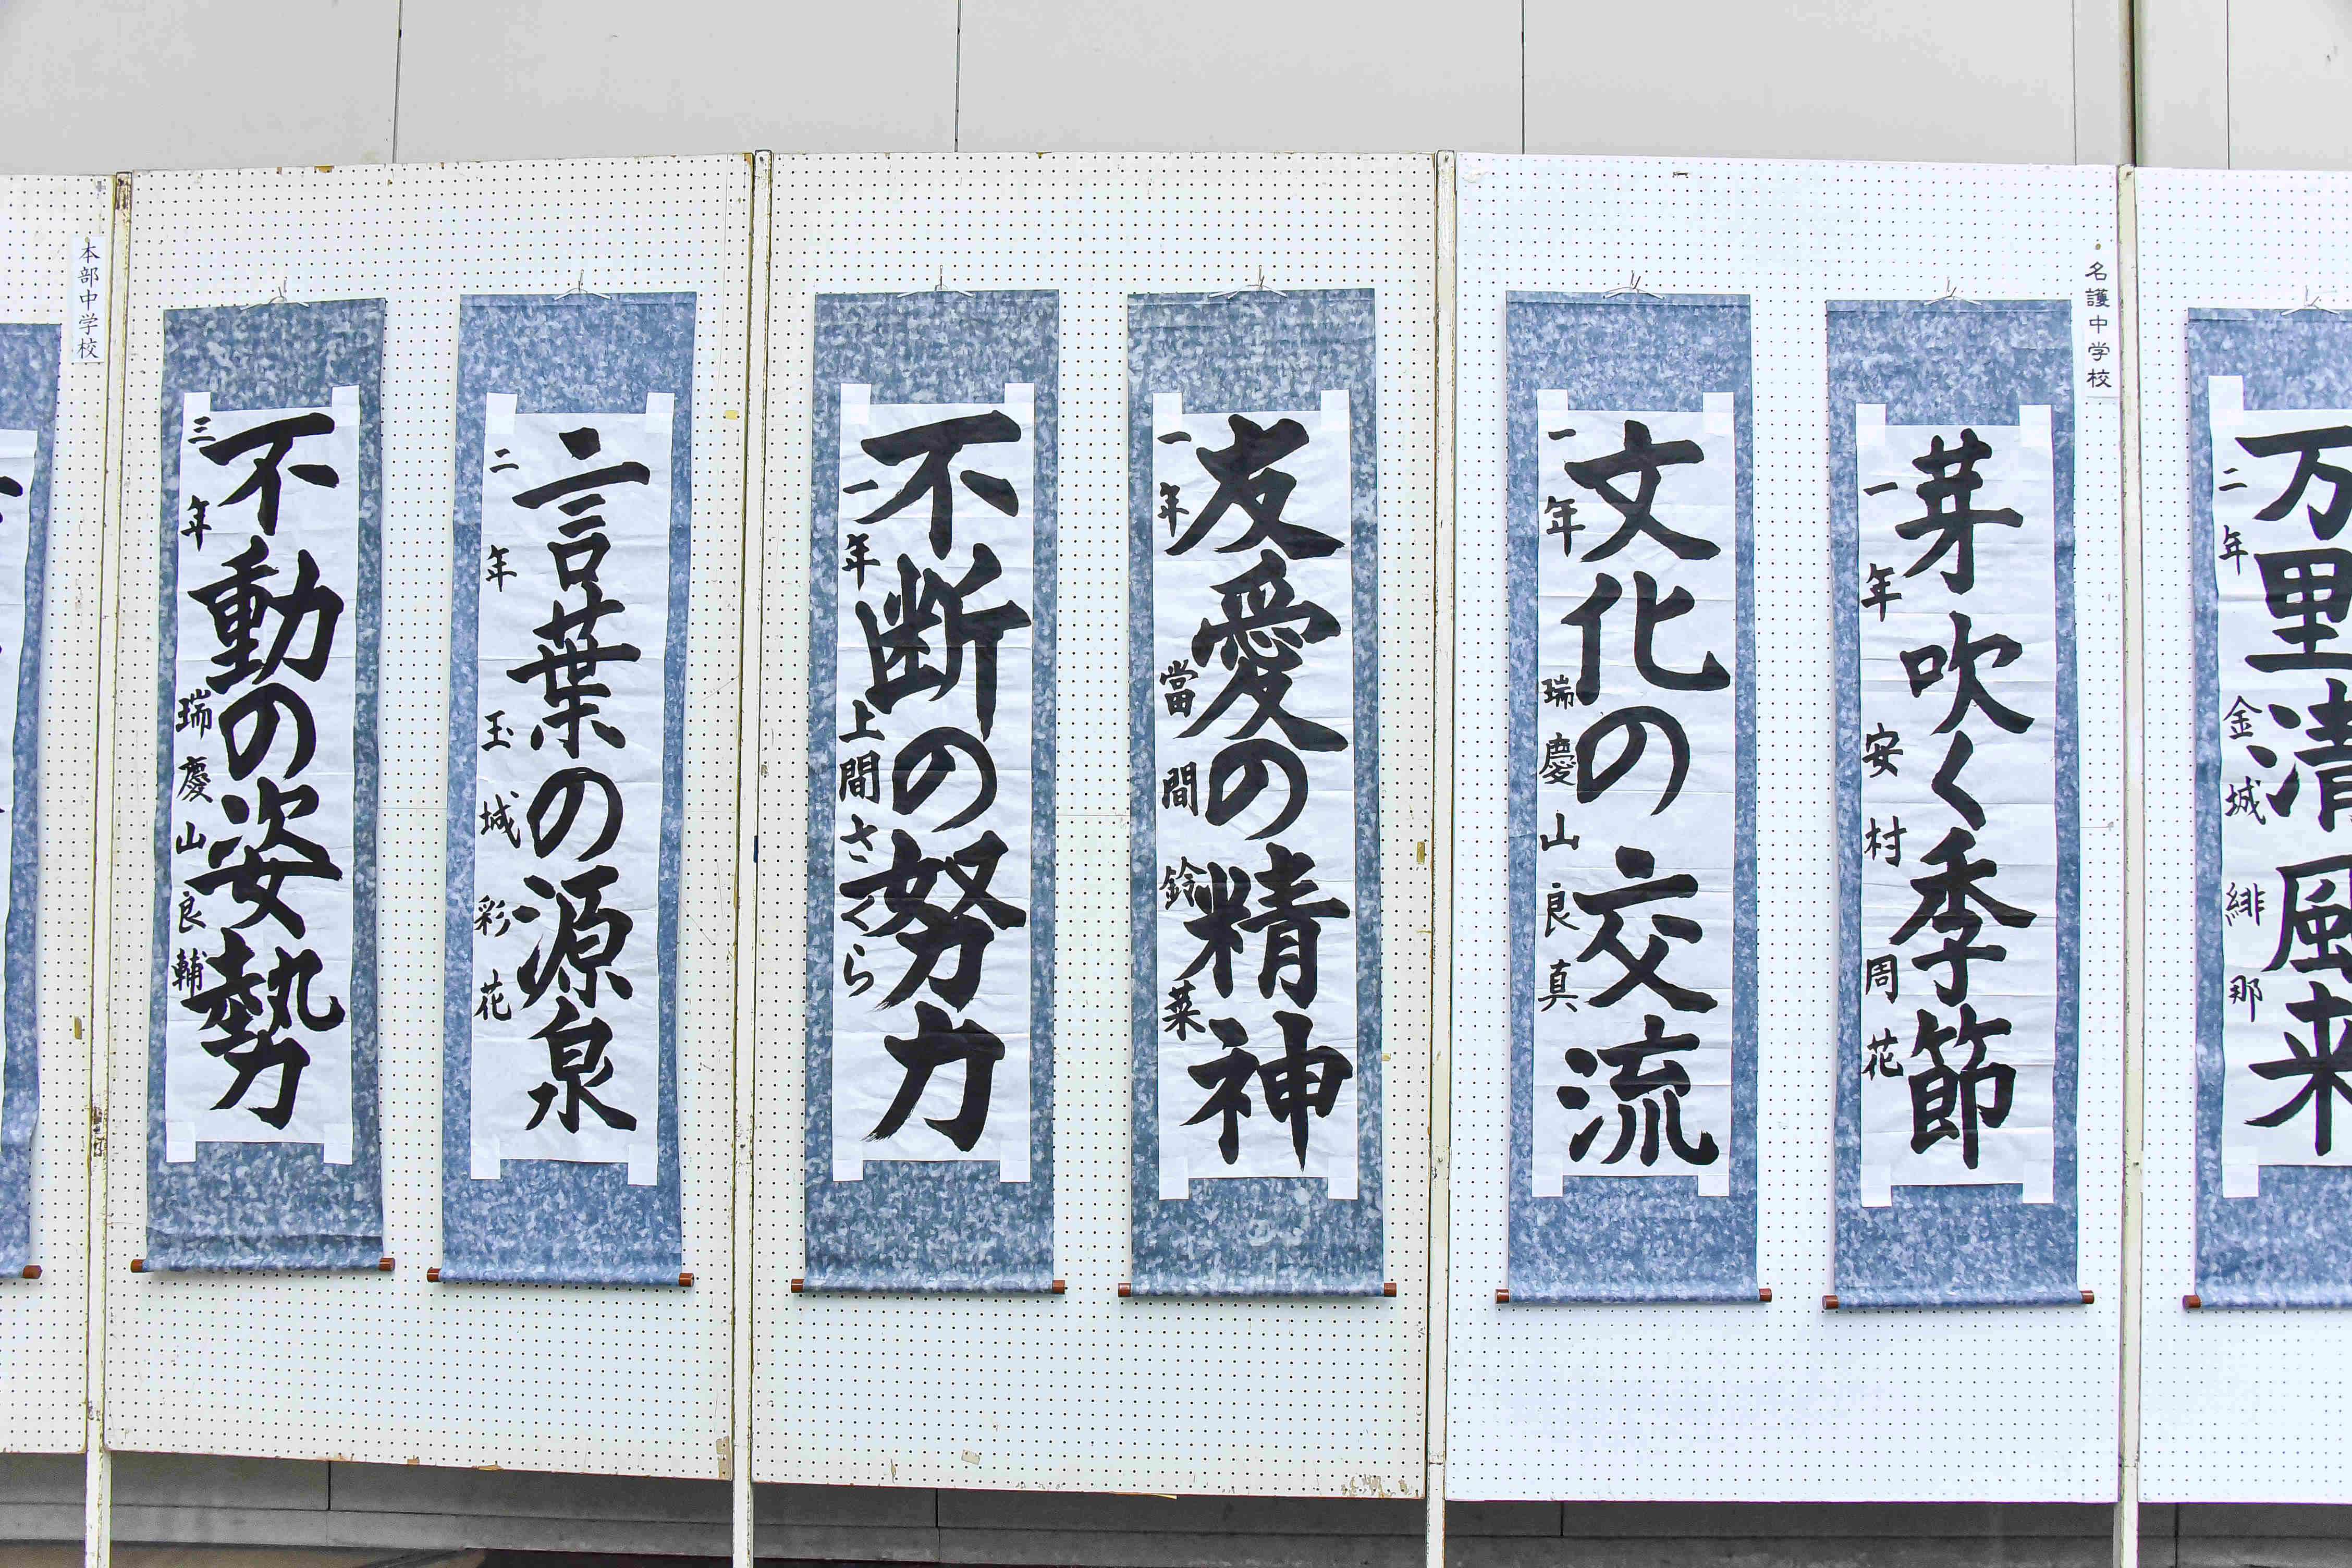 万里清風来
二年 金城 緋那
名護中学校
芽吹く季節
一年 安村 周花
文化の交流
一年 瑞慶山 良真
友愛の精神
一年 當間 鈴菜
不断の努力
一年 上間さくら
言葉の源泉
二年 玉城 彩花
不動の姿勢
三年 瑞慶山良輔
本部中学校